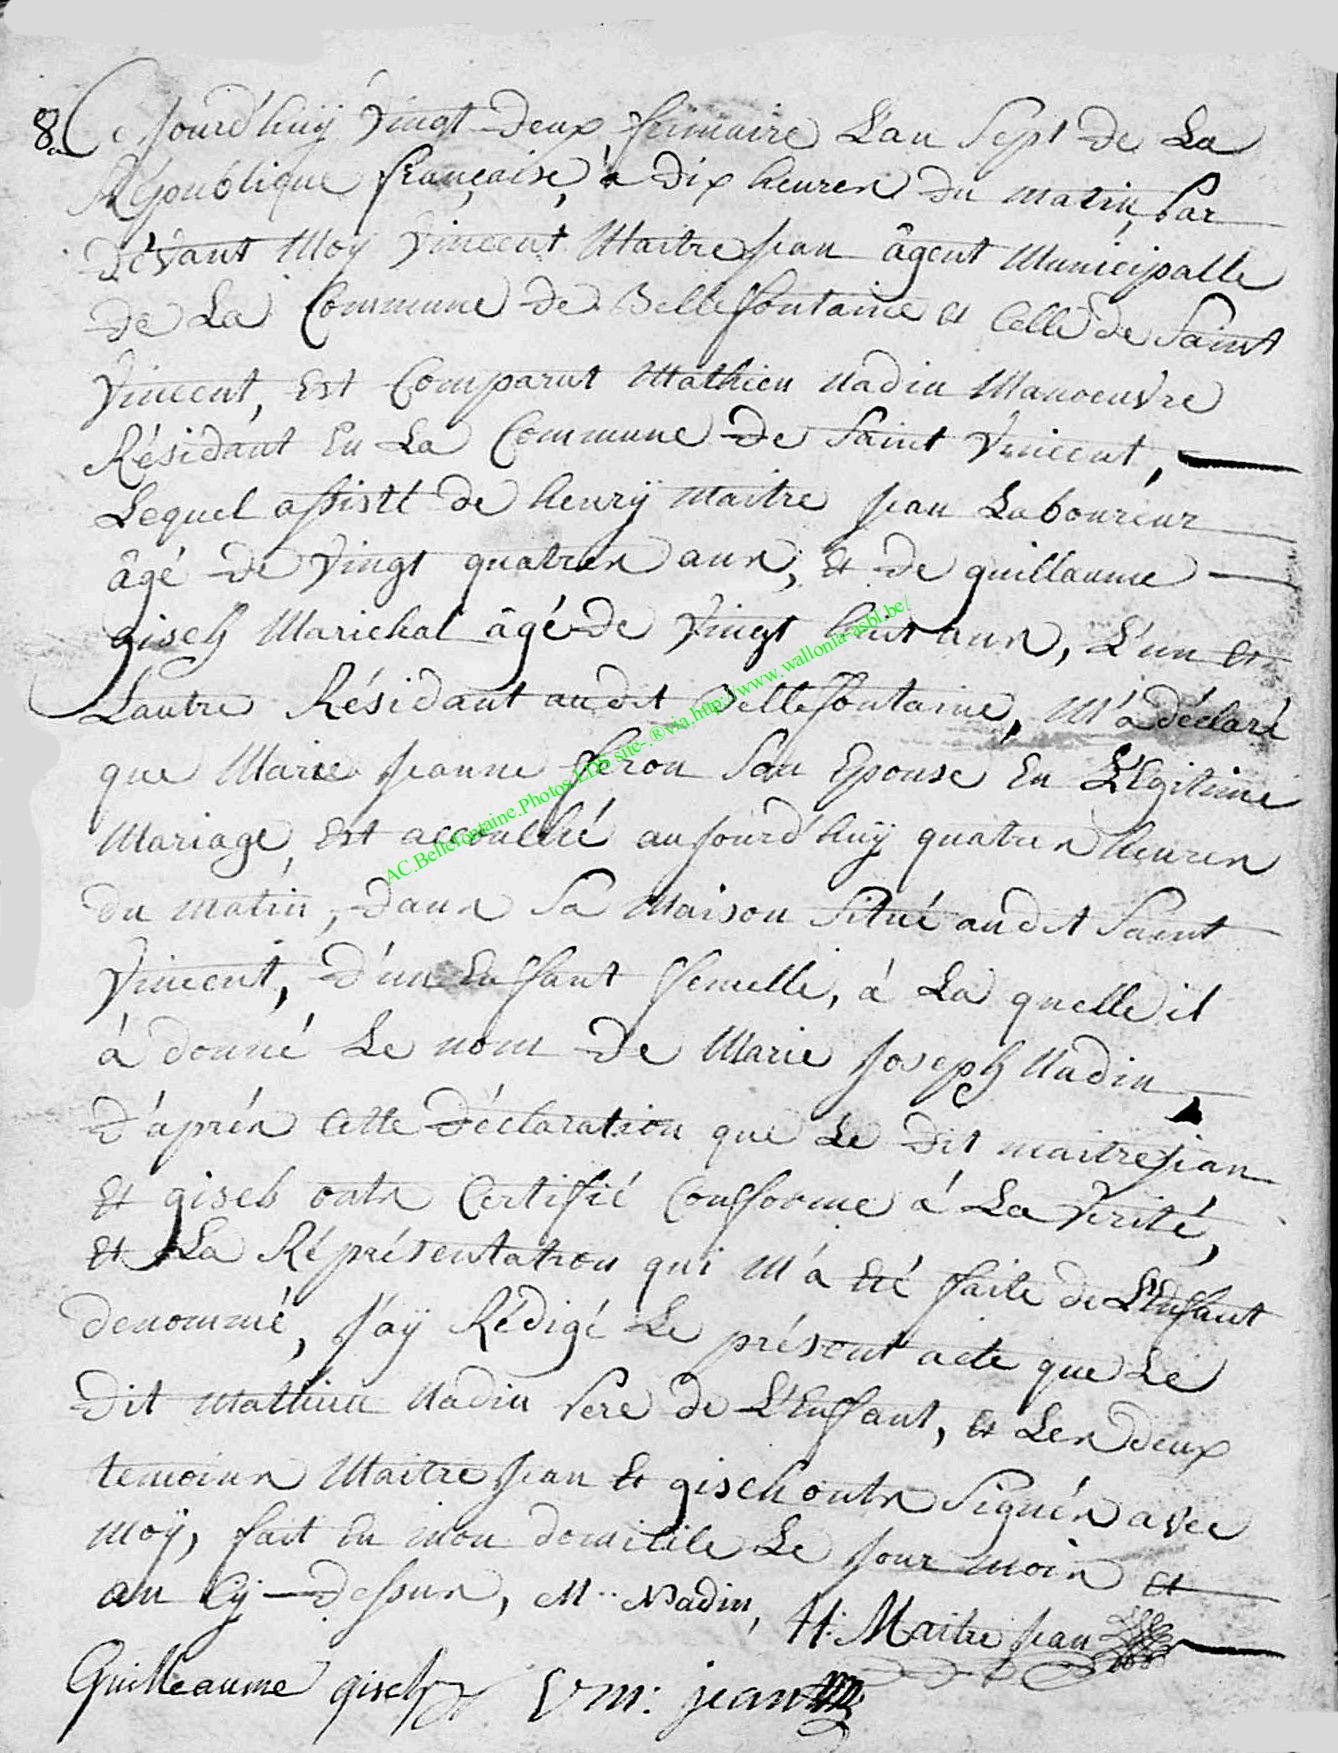 8a Ce Jourd'huÿ vingt-deux frimaire L'an Sept de La
République française, à dix heures du matin, Par
dévant Moy Vincent Maitrejean âgent Municipalle
de La Commune de Bellefontaine et Celle de Saint
Vincent, Est Comparut Mathieu Nadin Manoeuvre
Résidant En La Commune de Saint Vincent,
Lequel assisté de henrÿ Maitre jean Laboureur
âgé de vingt quatres ans, et de guillaume
gisch Marichal âgé de vingt huit ans, L'un et
Lautre Résidant audit Bellefontaine, M'à déclaré
que Marie jeanne féron Son Epouse En L'Egitime
Mariage, Est accouché aujourd'huÿ quatres heures
du matin, dans Sa Maison Situé audit Saint
Vincent, d'un Enfant femelle, à La quelle il
à donné Le nom de Marie Joseph Nadin
D'áprés Cette Déclaration que Le Dit maitrejean
Et gisch onts Certifié Confforme à La Vérité,
Et La Réprésentation qui M'à Eté faite de L'Enffant
denommé, J'áÿ Rédigé Le présent acte que Le
Dit Mathieu Nadin Pere de L'Enffant, et Les deux
temoins Maitre jean Et gisch onts Signés avec
Moÿ, fait En mon domicile Le jour mois et
an Cÿ-dessus, M.. Nadin, H: Maitre jean
Guilleaume gisch Vm: jean
AC.Bellefontaine.Photos.LDS site-.®via.http://www.wallonia-asbl.be/